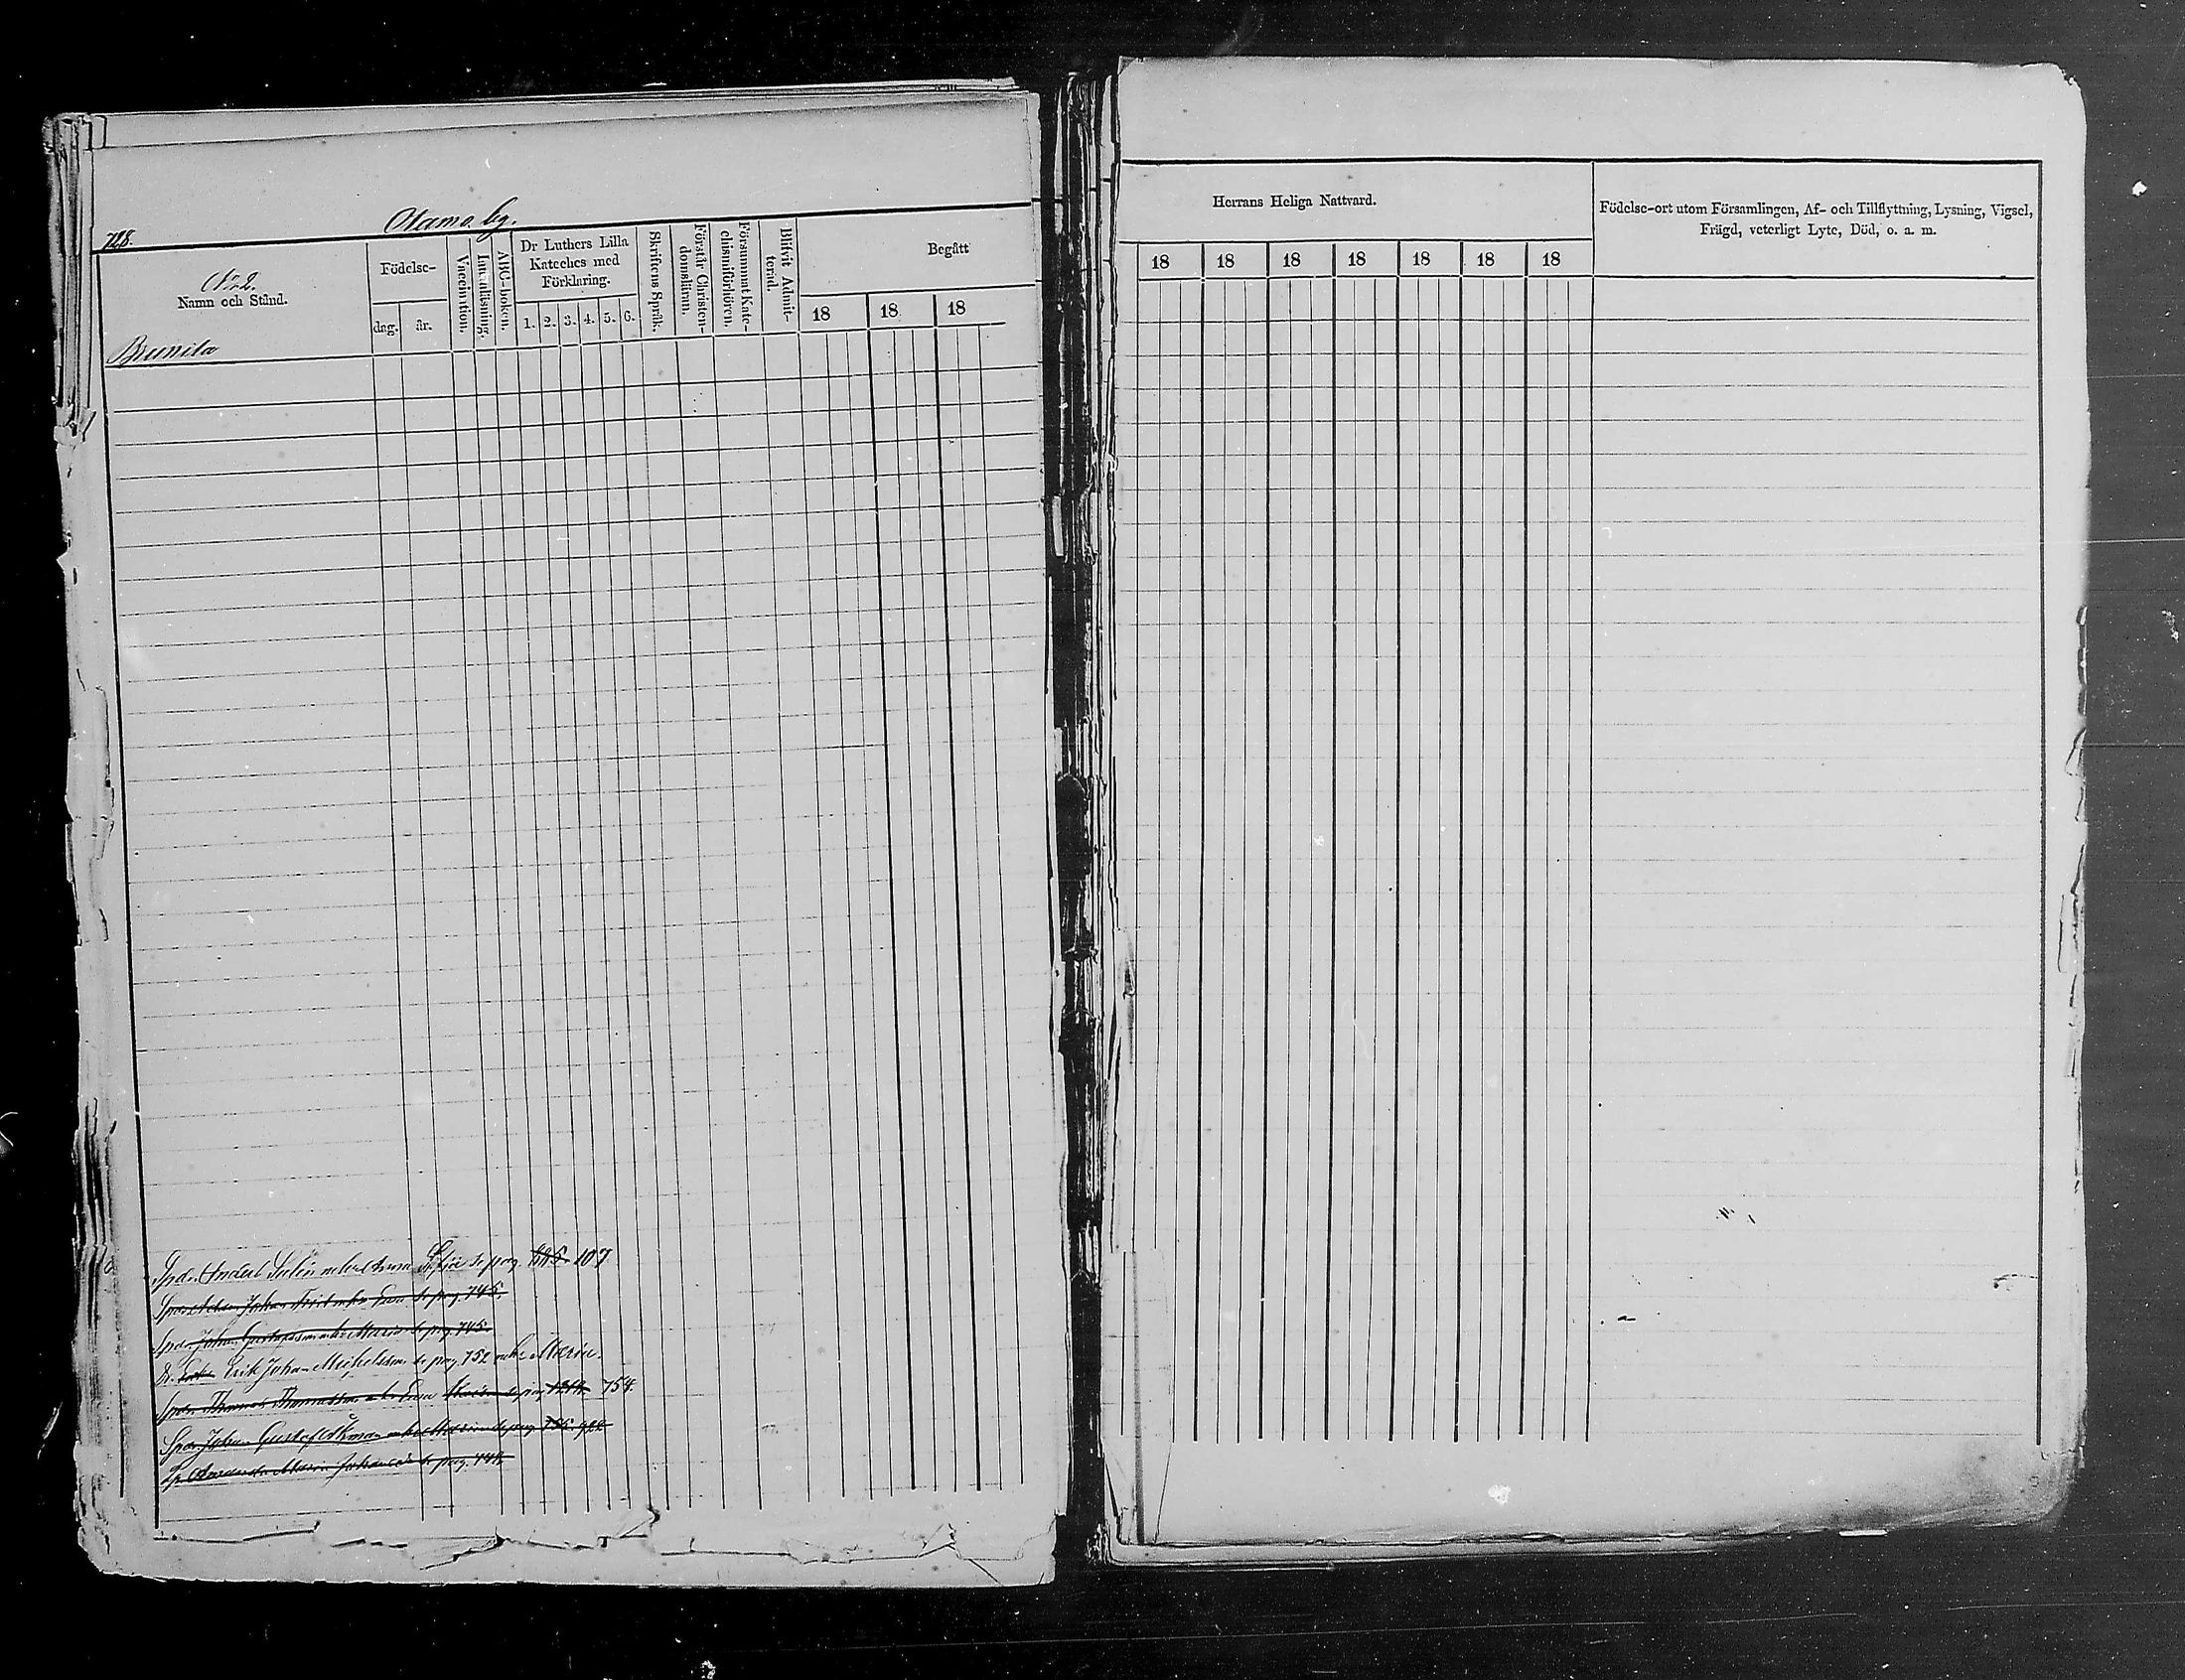 728.
by.
No 2.
Namn och Stånd.
Födelse-
dag. år.
Vaccination.
Innanläsning.
ABC-boken.
Dr Luthers Lilla
Kateches med
Förklaring.
1. 2. 3. 4. 5. 6.
Skriftens Språk.
Förstår Christen-
domsläran.
Försummat Kate-
chismiförhören.
Blifvit Admit-
terad.
Begått
18 18 18
Brunila
se pag. 107
Johan se pag. 745.
Johan Gustafsson Maria se pag. 745.
Erik Johan Michelsson se pag. 752 Maria.
Thomas Thomasson se pag 754.
Johan Gustaf se pag.
Amanda Maria se pag.
Herrans Heliga Nattvard.
18 18 18 18 18 18 18
Födelse-ort utom Församlingen, Af- och Tillflyttning, Lysning, Vigsel,
Frägd, veterligt Lyte, Död, o. a. m.